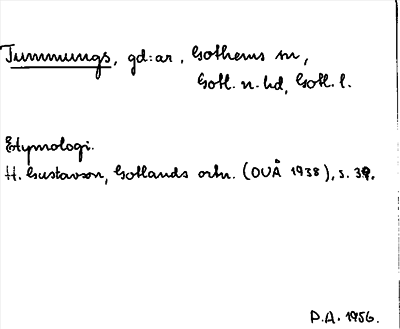 Tummungs, gd:ar, Gothems sn,
Gotl. n. hd, Gotl. l.
Etymologi.
H. Gustavson, Gotlands ortn. (OUÅ 1938), s. 39.
P.A. 1956.